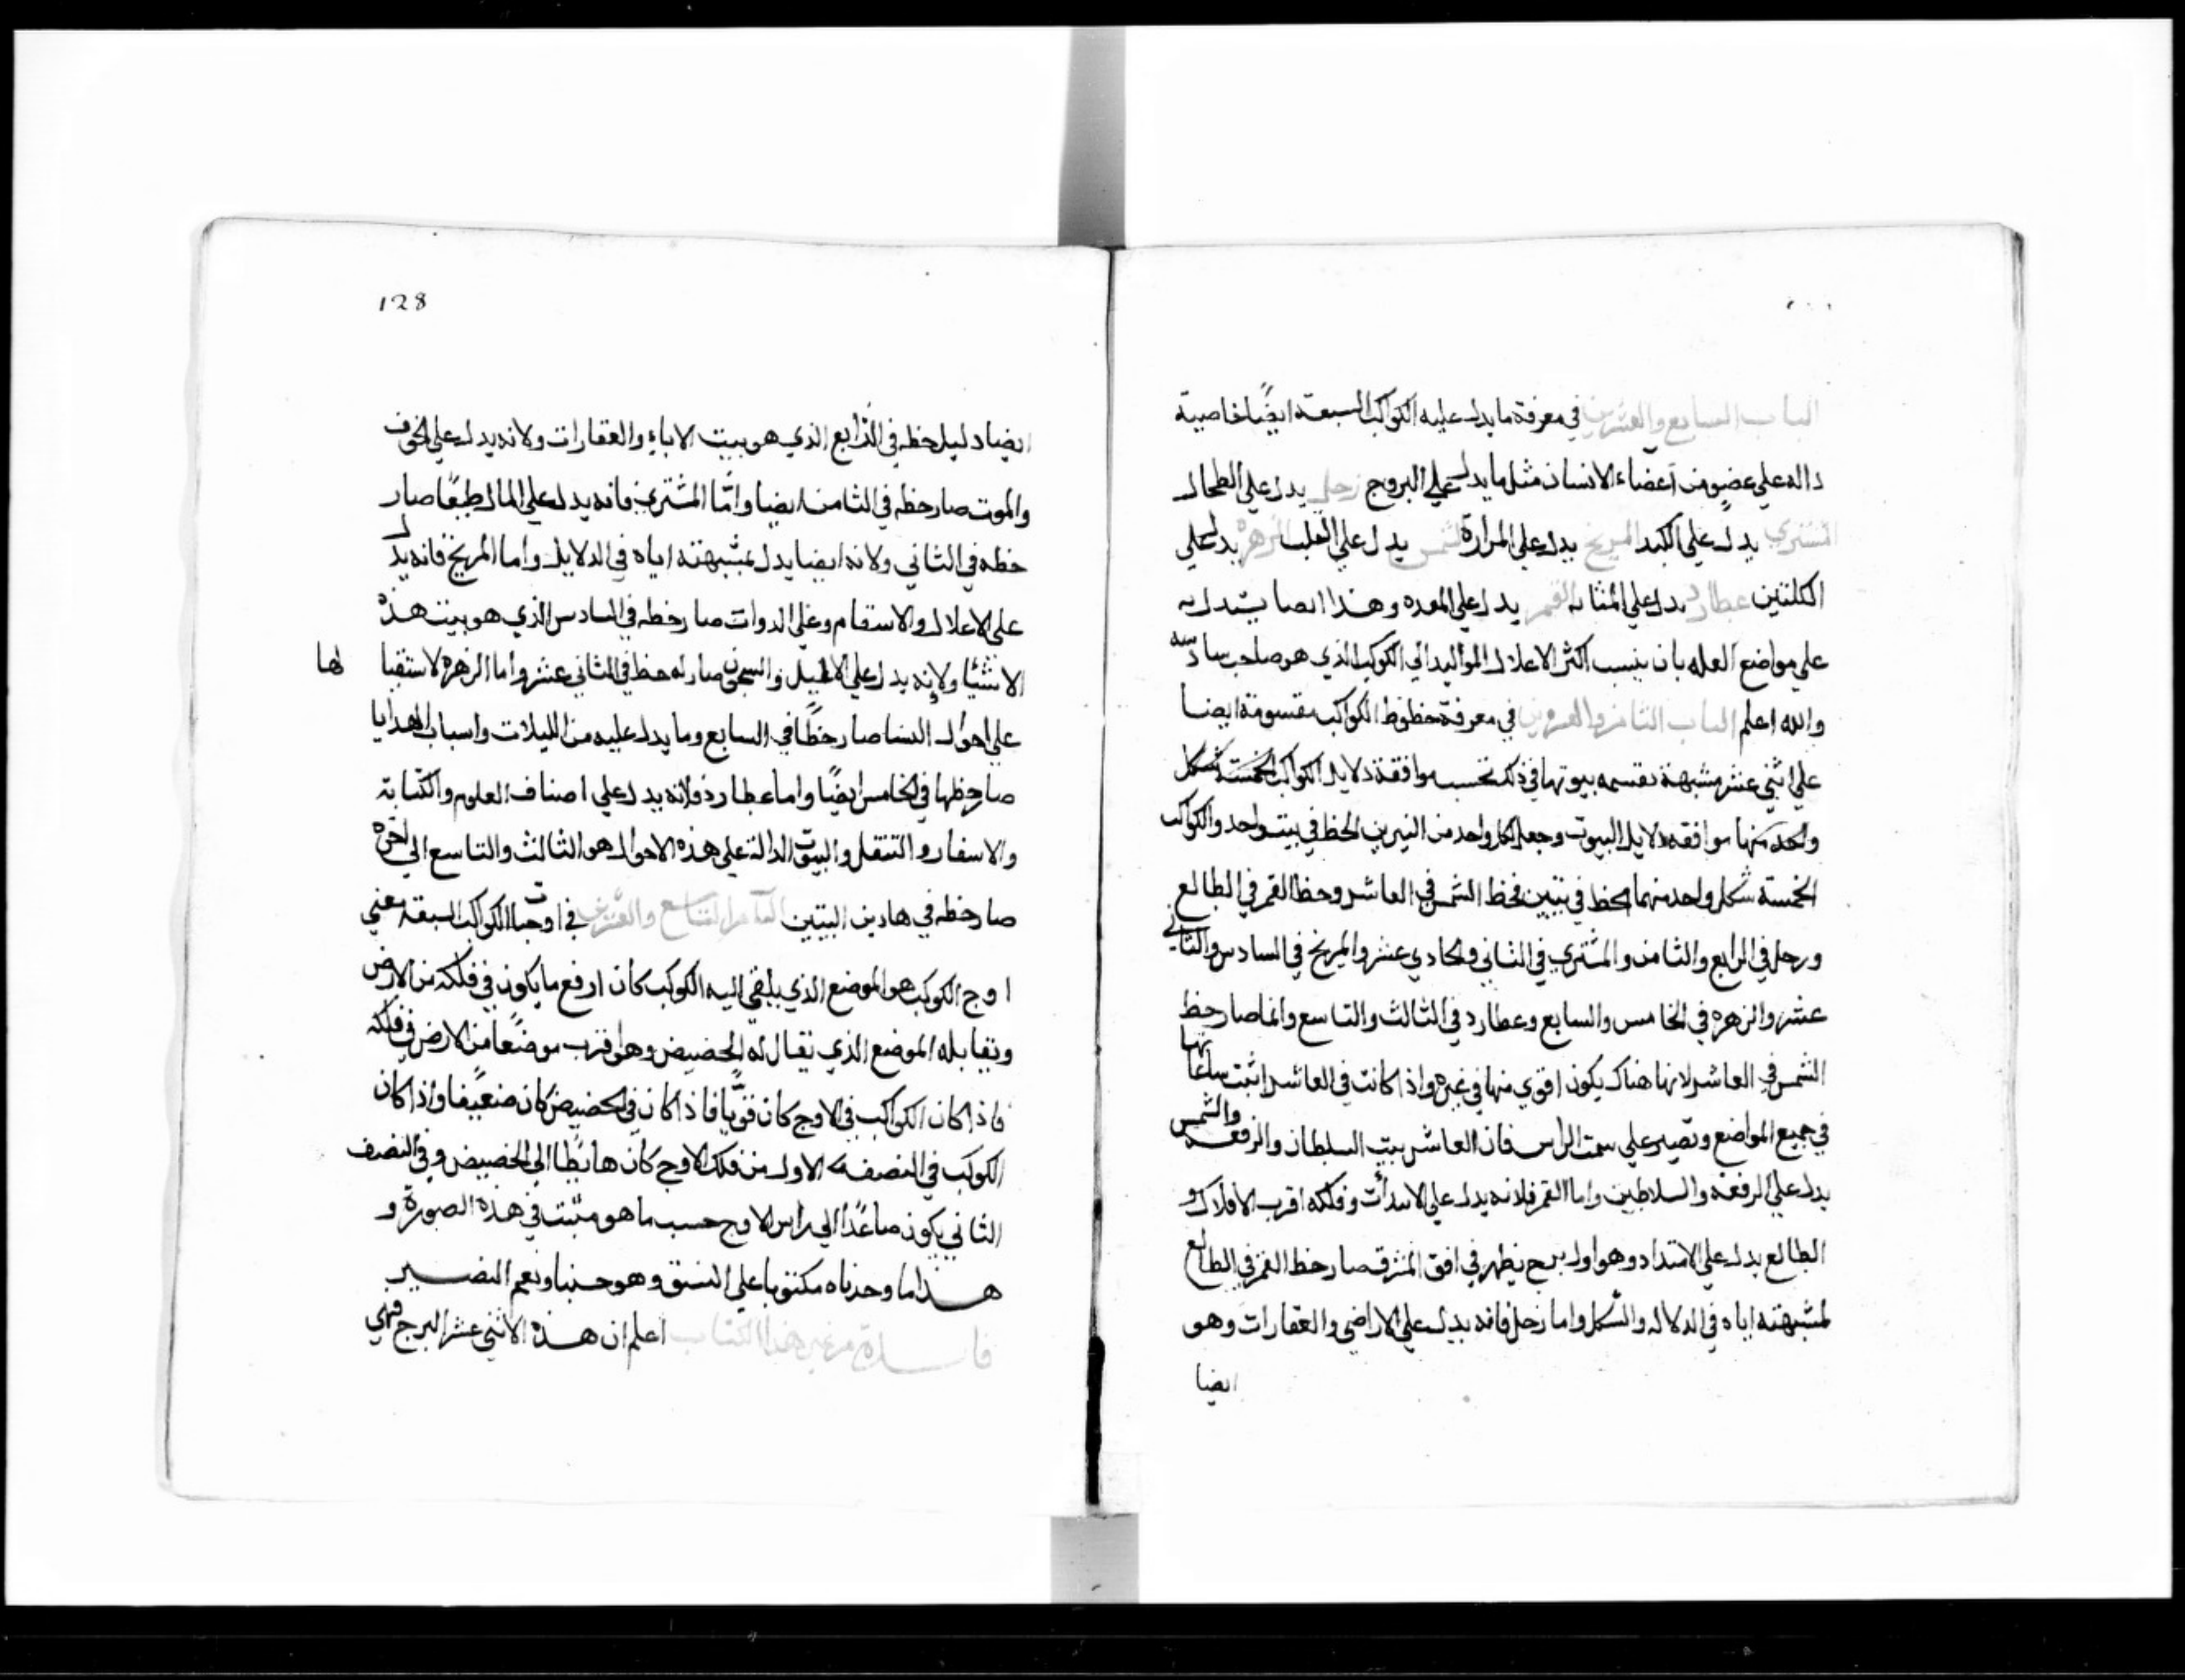 الباب السابع والعشرين في معرفة ما يدل عليه الكواكب السبعة ايضًا خاصية
داله علي عضو من آعضاء الانسان مثل ما يدل علي البروج زحل يدل علي الطحال
المشتري يدل علي الكبد المريخ يدل علي المرارة الشمس يدل علي القلب الزهره يدل علي
الكلتين عطارد يدل علي المثانه القمر يدل علي المعده وهذا ايضا يستدل به
علي مواضع العله بان ينسب اكثر الاعلال المواليد الي الكوكب الذي هو صاحب سادسه
والله اعلم الباب الثامن والعشرين في معرفة حظوظ الكواكب مقسومة ايضا
علي اثني عشر مشبهة بقسمه بيوتها في ذلك تحسب موافقة دلايل الكواكب الخمسة شكل
واحد منها موافقه دلايل البيوت وجعل لكل واحد من النيرين الحظ في بيت واحد والكواكب
الخمسة شكل واحد منهما لحظ في بتيين فحظ الشمس في العاشر وحظ القمر في الطالع
وزحل في الرابع والثامن والمشتري في الثاني والحادي عشر والمريخ في السادس والثاني
عشر والزهره في الخامس والسابع وعطارد في الثالث والتاسع وانما صار حظ
الشمس في العاشر لانها هناك يكون اقوي منها في غيره واذا كانت في العاشر اثبت ساعاتها
في جميع المواضع وتصير علي سمت الراس فان العاشر بيت السلطان والرفعه والشمس
يدل علي الرفعة والسلاطين واما القمر فلانه يدل علي الابتدأت وفلكه اقرب الافلاك و
الطالع يدل علي الابتداء وهو اول برج يظهر في افق المشرق صار حظ القمر في الطالع
لمشبهته اياه في الدلاله والشكل واما زحل فانه يدل علي الاراضي والعقارات وهو
ايضا
128
ايضا دليل حظه في الرابع الذي هو بيت الاباء والعقارات ولانه يدل علي الخوف
والموت صار حظه في الثامن ايضا وامّا المشتري فانه يدل علي المال طبعًا صار
حظه في الثاني ولانه ايضا يدل بمشبهته اياه في الدلايل واما المريخ فانه يدل
علي الاعلال والاسقام وعلي الدوات صار حظه في السادس الذي هو بيت هذه
الاشيا ولانه يدل علي الاطبيل والسجون صار له حظ في الثاني عشر واما الزهره لاستقبا لها
علي احوال النسا صار حظًا في السابع وما يدل عليه من الليلات واسباب الهدايا
صار حظها في الخامس ايضًا واما عطارد فلانه يدل علي اصناف العلوم والكتابة
والاسفار والتنقل والبيوت الدالة علي هذه الاحوال هو الثالث والتاسع الي اخره
صار حظه في هادين البيتين الباب التاسع والعشرين في اوجات الكواكب السبعة معني
اوج الكوكب هو الموضع الذي يلقي اليه الكوكب كان ارفع ما يكون في فلكه من الارض
وتقابله الموضع الذي يقال له الحضيض وهو اقرب موضعًا من الارض في فلكه
فاذ كان الكواكب في الاوج كان قويًّا فاذا كان في الحضيض كان ضعيفا واذا كان
الكوكب في النصف الاول من فلك الاوج كان هابطًا الي الحضيض وفي النصف
الثاني يكون صاعدًا الي راس الاوج حسب ما هو مثبت في هذه الصورة و
هذا ما وجدناه مكتوبا علي النسق وهو حسبنا ونعم النصير
فايدة من غير هذا الكتاب اعلم ان هذه الاثني عشر البرج فهي